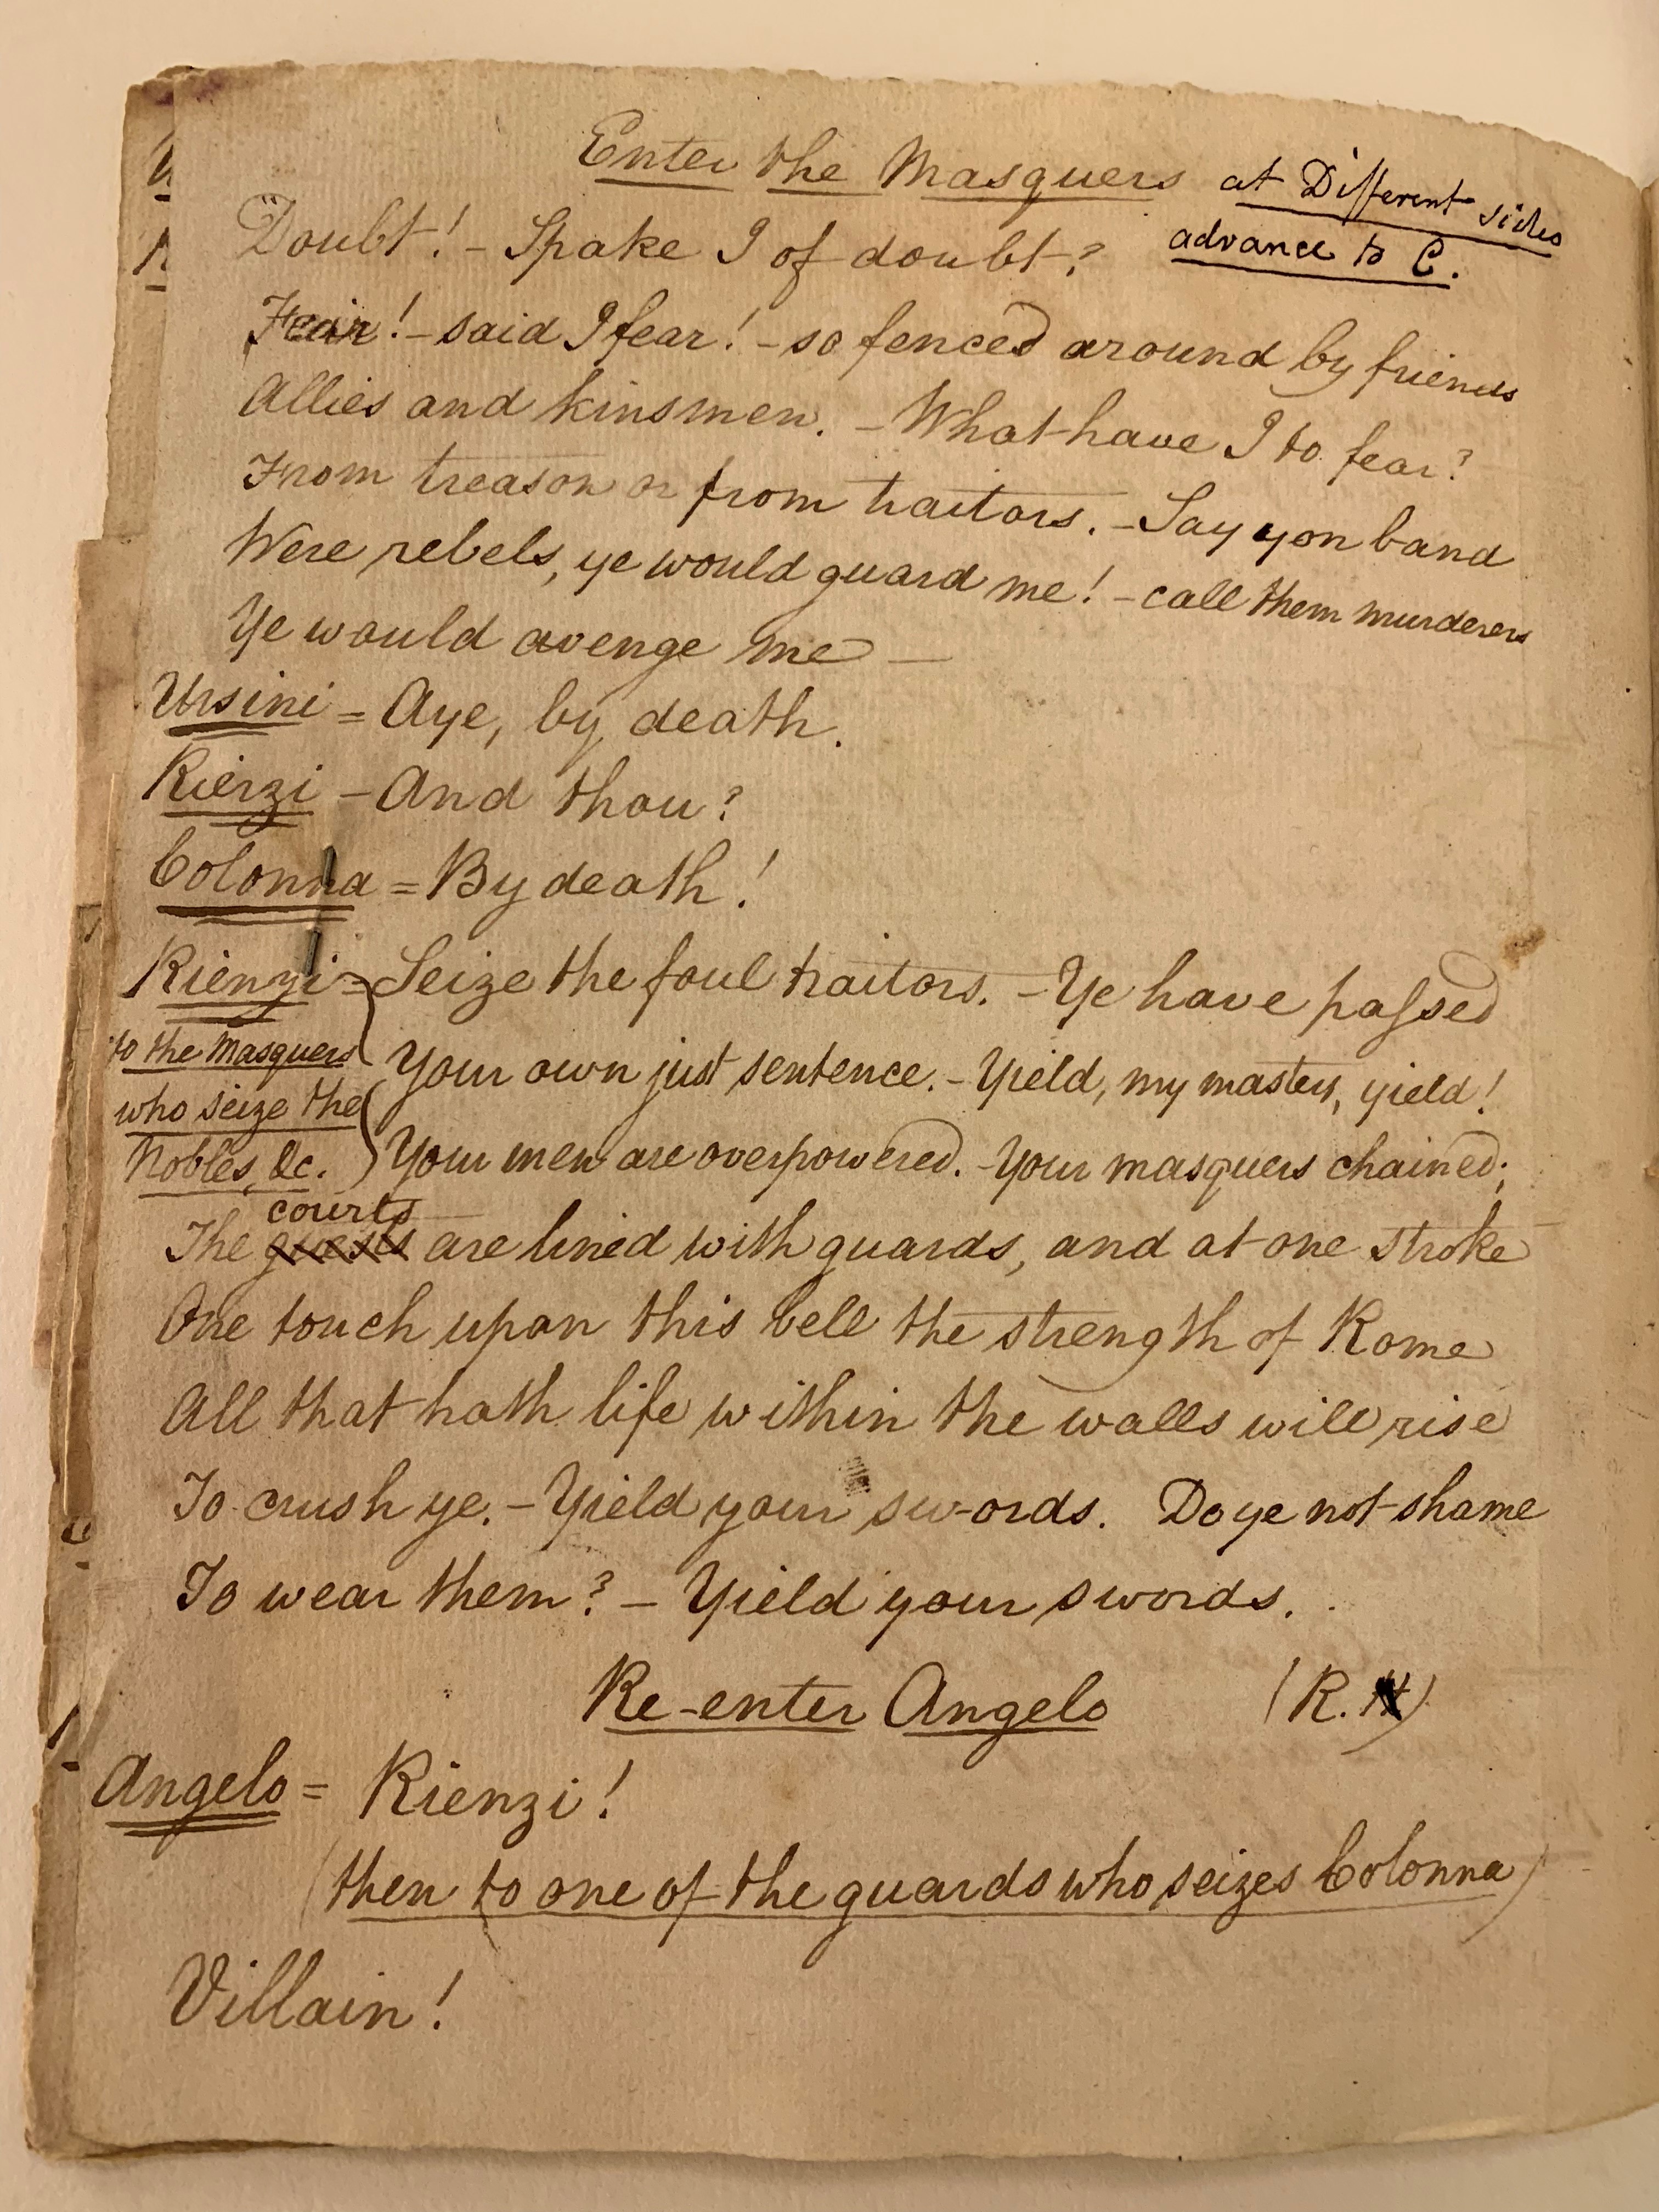 Enter the Masquers at Different sides
advance to C.
Doubt! - Spake I of doubt?
Fear! - said I fear! - so fenced around by friends
Allies and kinsmen. - What have I to fear?
From treason or from traitors. - Say yon band
Were rebels, ye would guard me! - call them murderers
Ye would avenge me —
Ursini = Aye, by death.
Rienzi - And thou?
Colonna = By death!
Rienzi = Seize the foul traitors. - Ye have passed
to the Masquers
who seize the
Nobles, &c.
Your own just sentence. - Yield, my masters, yield!
Your men are overpowered. - Your masquers chained;
courts
The guests are lined with guards, and at one stroke
One touch upon this bell the strength of Rome
All that hath life within the walls will rise
To crush ye. - Yield your sw-ords. Do ye not shame
To wear them? - Yield your swords.
Re-enter Angelo (R.)
Angelo = Rienzi!
(then to one of the guards who seizes Colonna)
Villain!